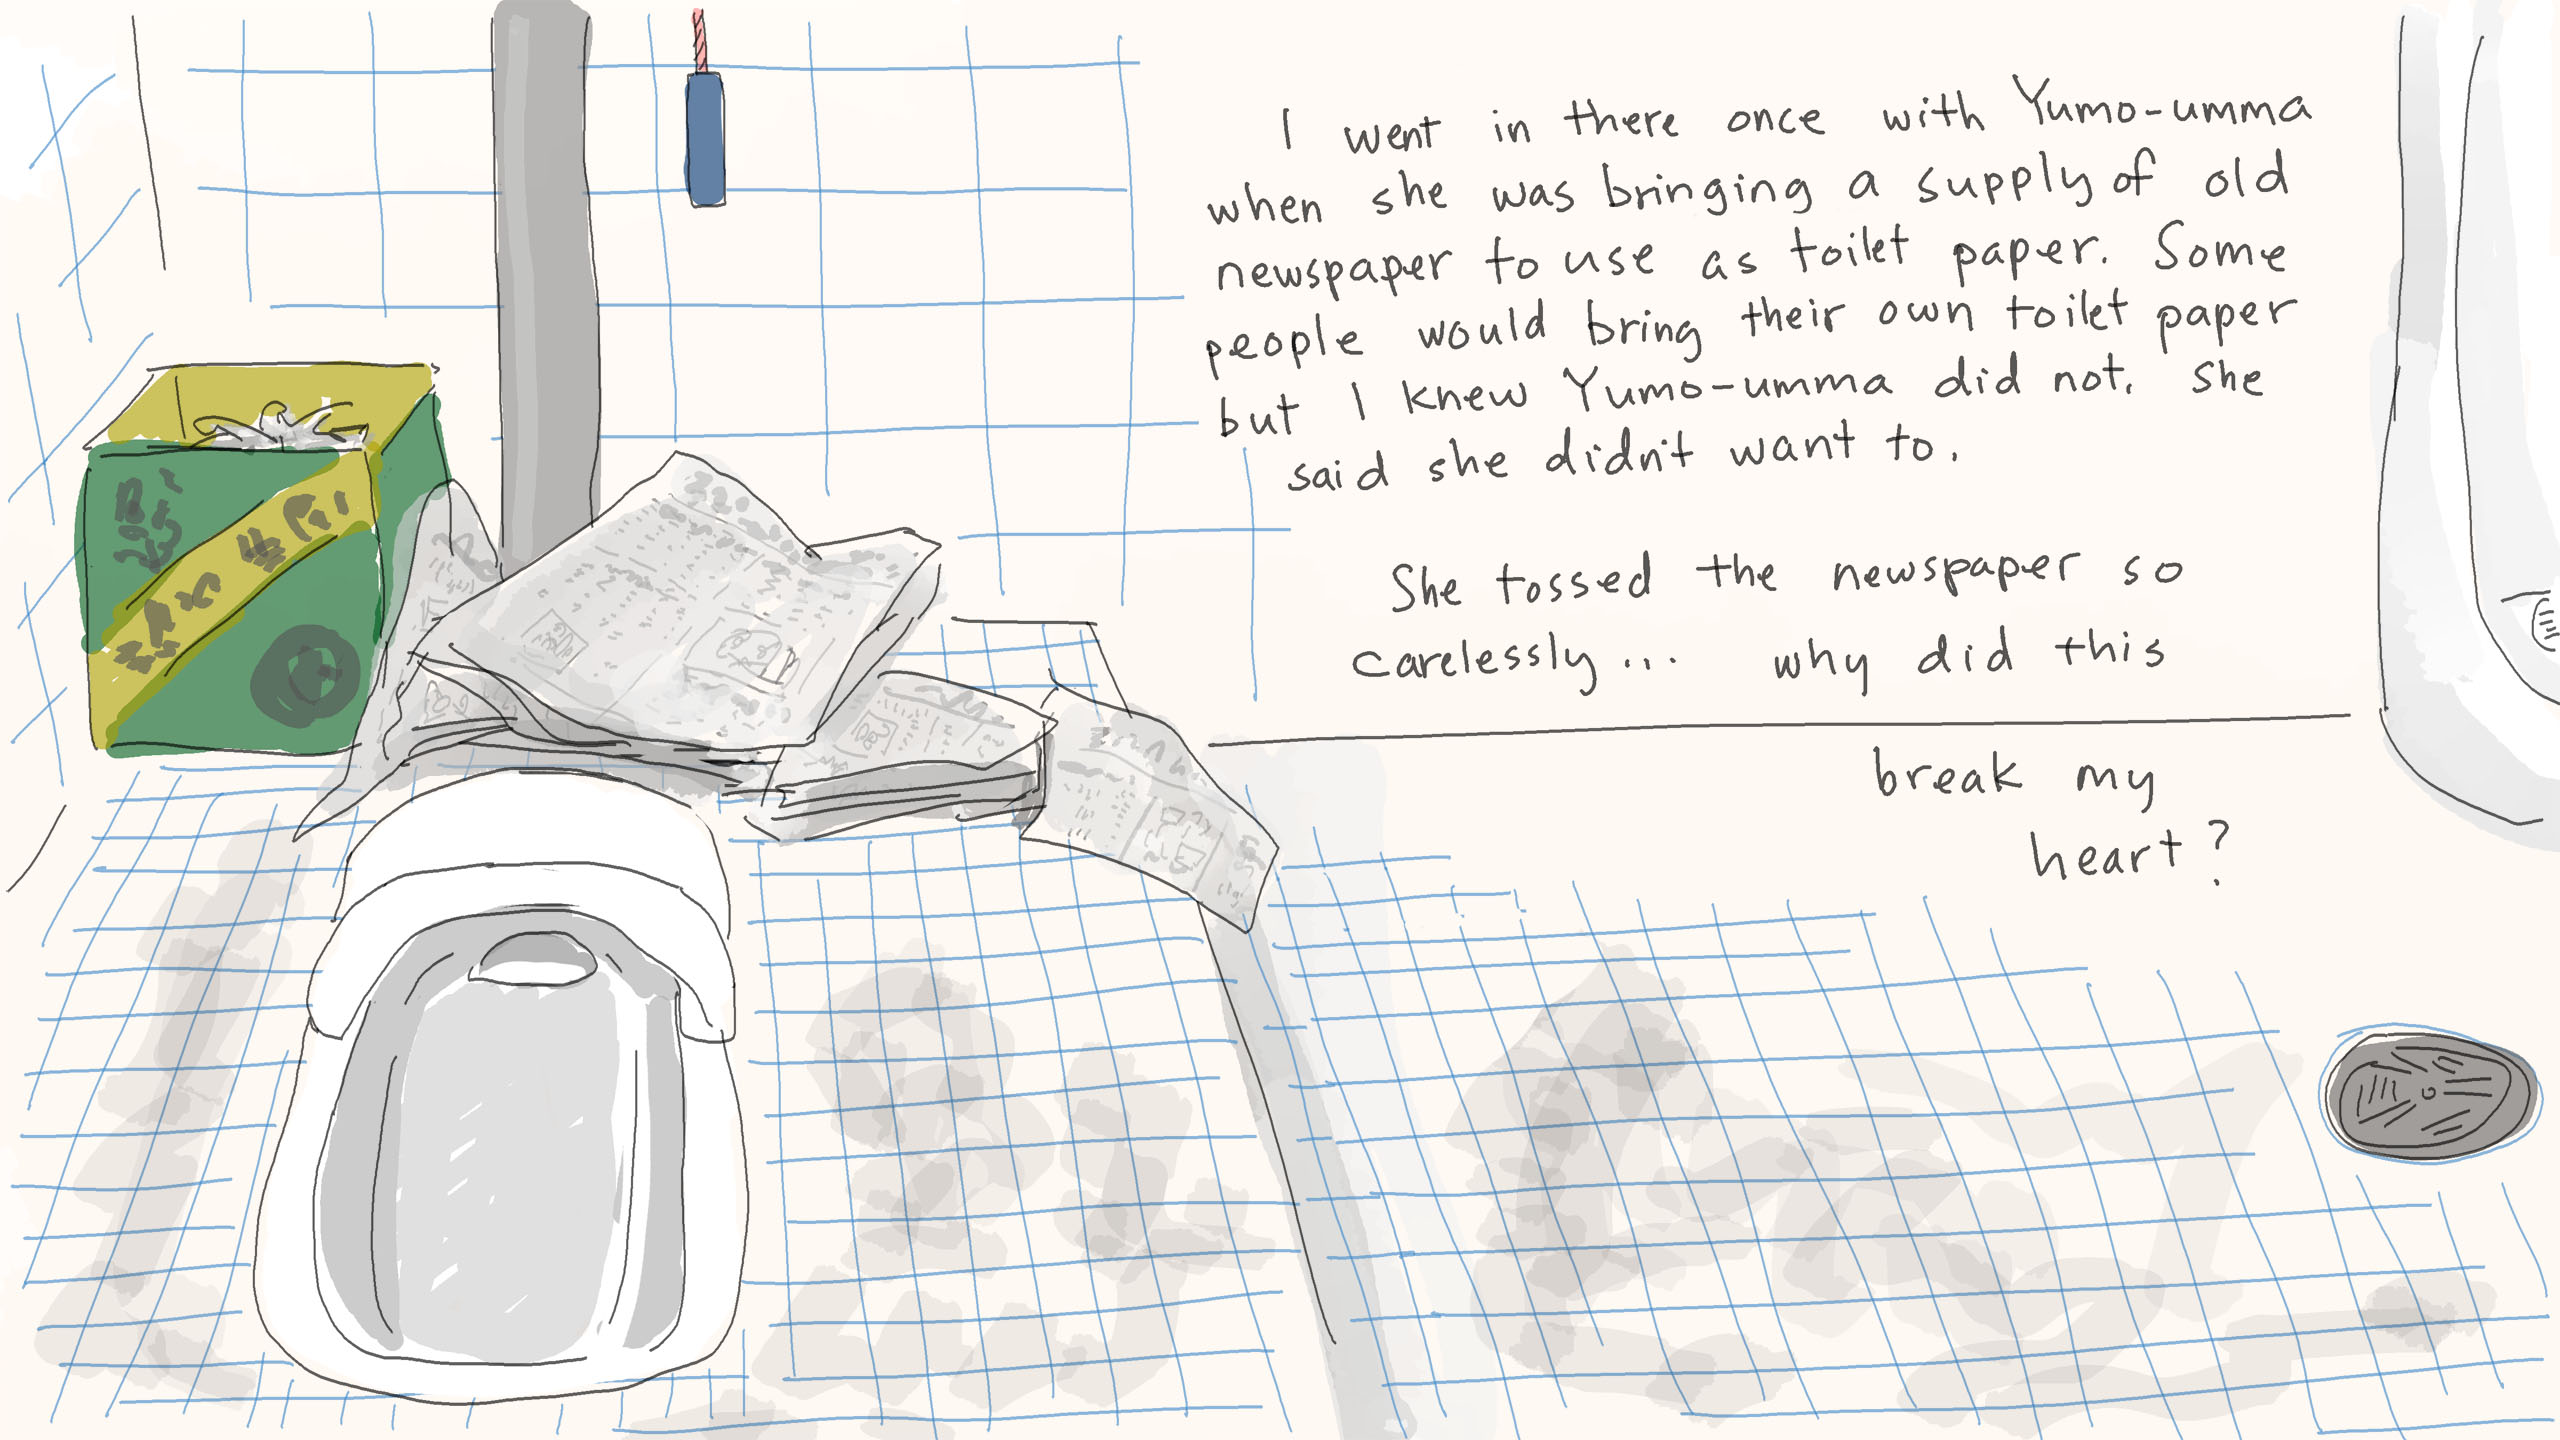 I went in there once with Yumo-umma
when she was bringing a supply of old
newspaper to use as toilet paper. Some
people would bring their own toilet paper
but I knew Yumo-umma did not. She
said she didn't want to.
She tossed the newspaper so
carelessly... why did this
break my
heart?